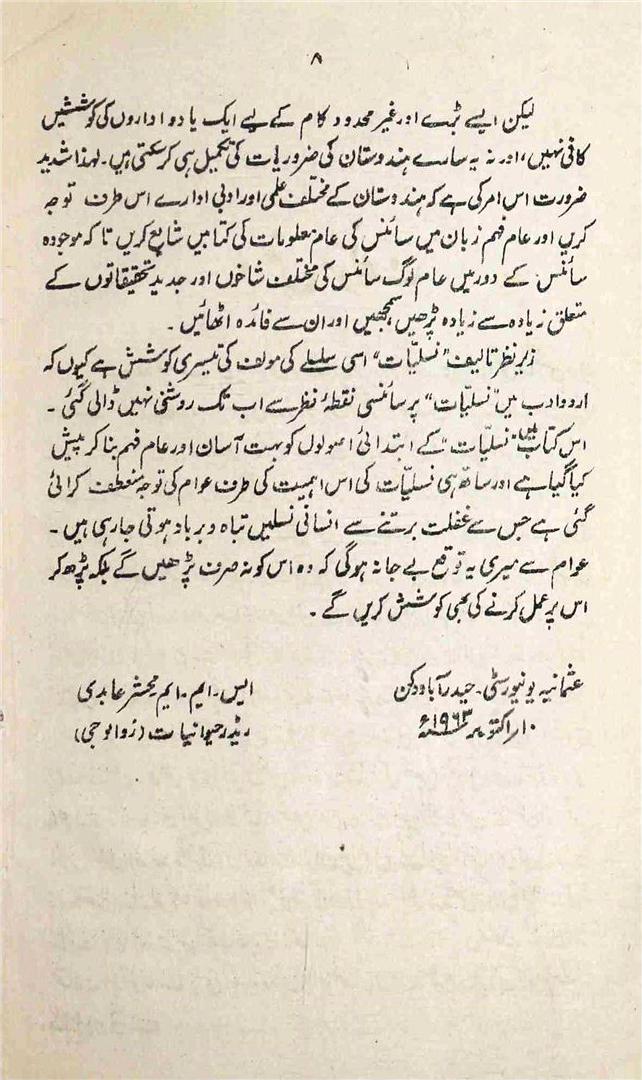 ۸
لیکن ایسے بڑے اور غیر محدود کام کے لیے ایک یا دو اداروں کی کوششیں
کافی نہیں، اور نہ یہ سارے ہندوستان کی ضروریات کی تکمیل ہی کرسکتی ہیں۔ لہذا شدید
ضرورت اس امر کی ہے کہ ہندوستان کے مختلف علمی اور ادبی ادارے اس طرف توجہ
کریں اور عام فہم زبان میں سائنس کی عام معلومات کی کتابیں شایع کریں تاکہ موجودہ
سائنس کے دور میں عام لوگ سائنس کی مختلف شاخوں اور جدید تحقیقاتوں کے
متعلق زیادہ سے زیادہ پڑھیں، سمجھیں اور ان سے فائدہ اٹھائیں۔
زیر نظر تالیف "نسلیّات" اسی سلسلے کی مولف کی تیسری کوشش ہے کیوں کہ
اردو ادب میں "نسلیّات" پر سائنسی نقطۂ نظر سے اب تک روشنی نہیں ڈالی گئی۔
اس کتاب میں "نسلیّات" کے ابتدائی اصولوں کو بہت آسان اور عام فہم بنا کر پیش
کیا گیا ہے اور ساتھ ہی نسلیّات کی اس اہمیت کی طرف عوام کی توجہ منعطف کرائی
گئی ہے جس سے غفلت برتنے سے انسانی نسلیں تباہ و برباد ہوتی جارہی ہیں۔
عوام سے میری یہ توقع بے جا نہ ہوگی کہ وہ اس کو نہ صرف پڑھیں گے بلکہ پڑھ کر
اس پر عمل کرنے کی بھی کوشش کریں گے۔
عثمانیہ یونیورسٹی۔ حیدرآباد دکن
۱۰ اکتوبر ۱۹۶۳ء
ایس۔ ایم۔ ایم محشر عابدی
ریڈر حیوانیات (زوالوجی)